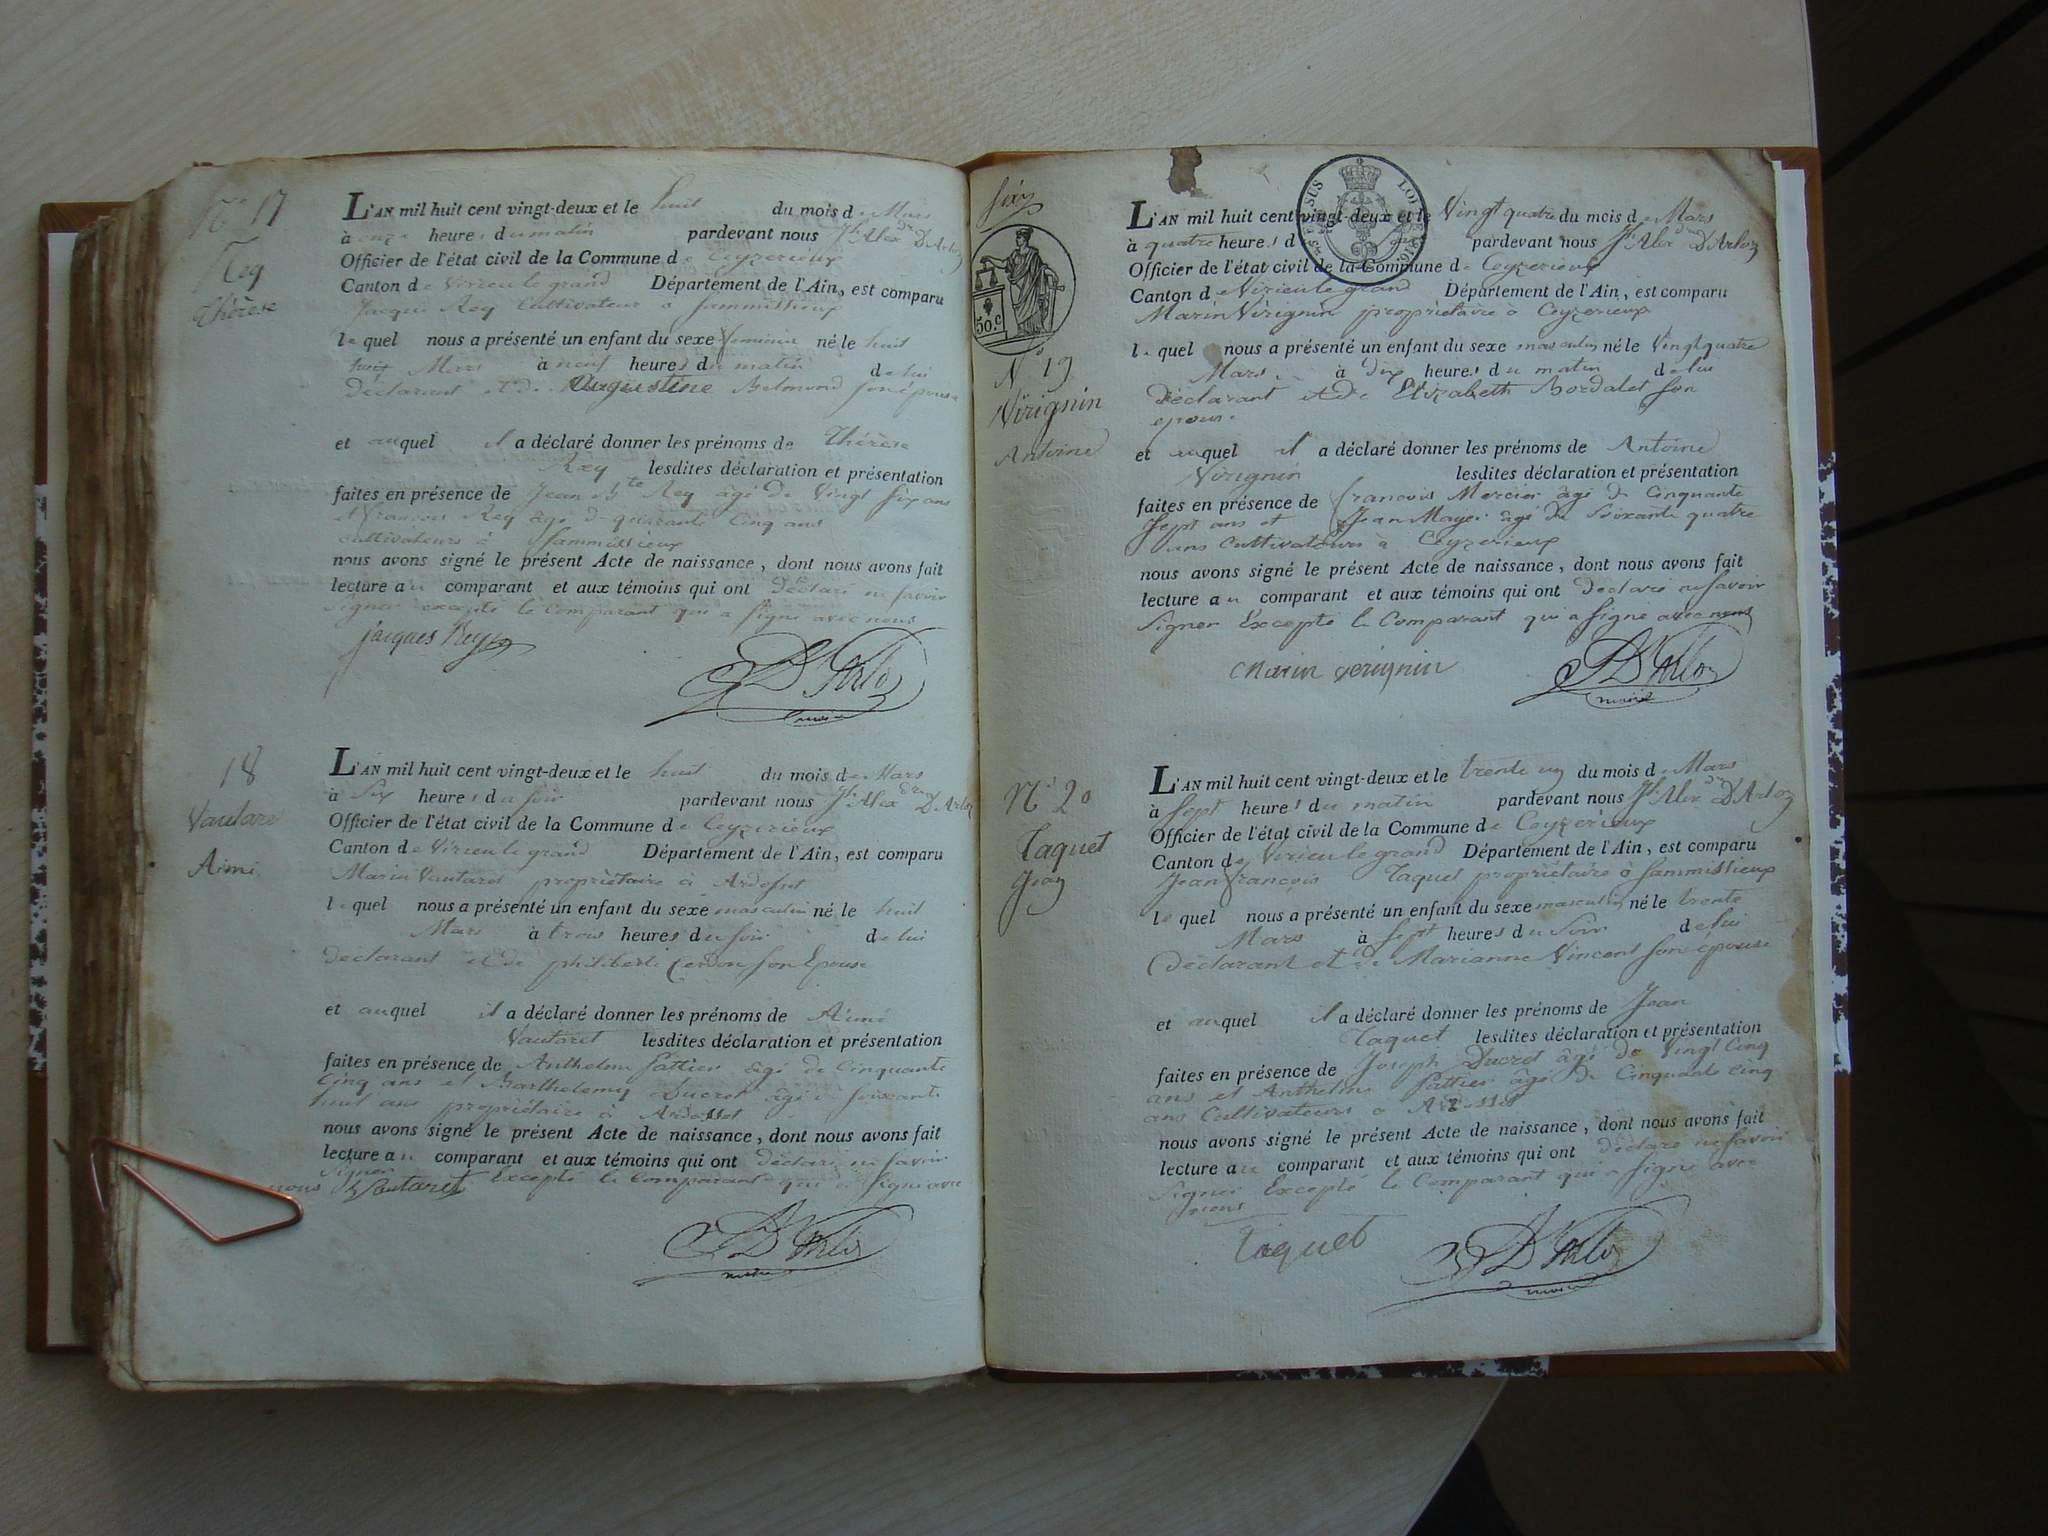 N° 17
Rey
Thérèse
L'AN mil huit cent vingt-deux et le huit du mois de Mars
à onze heures du matin pardevant nous Jh Alexdre D'Arloz
Officier de l'état civil de la Commune de Ceyzerieux
Canton de Virieu le grand Département de l'Ain, est comparu
Jacques Rey Cultivateur à Sammissieux
lequel nous a présenté un enfant du sexe féminin né le huit
huit Mars à neuf heures du matin de lui
Déclarant et de Augustine Belmond son épouse
et auquel il a déclaré donner les prénoms de Thérèse
Rey lesdites déclaration et présentation
faites en présence de Jean Bte Rey âgé de Vingt six ans
et François Rey âgé de quarante Cinq ans
cultivateurs à Sammissieux
nous avons signé le présent Acte de naissance, dont nous avons fait
lecture au comparant et aux témoins qui ont Déclaré ne savoir
Signer excepté le comparant qui a signé avec nous
jacques Rey
D'Arloz
maire
18
Vautaret
Aimé
L'AN mil huit cent vingt-deux et le huit du mois de Mars
à Six heures du soir pardevant nous Jh Alexdre D'Arloz
Officier de l'état civil de la Commune de Ceyzerieux
Canton de Virieu le grand Département de l'Ain, est comparu
Marin Vautaret propriétaire à Ardosset
lequel nous a présenté un enfant du sexe masculin né le huit
Mars à trois heures du soir de lui
déclarant et de philiberte Cerdon son Epouse
et auquel il a déclaré donner les prénoms de Aimé
Vautaret lesdites déclaration et présentation
faites en présence de Anthelme Pattier âgé de Cinquante
Cinq ans et Barthelemy Ducret âgé de soixante
huit ans propriétaire à Ardosset
nous avons signé le présent Acte de naissance, dont nous avons fait
lecture au comparant et aux témoins qui ont déclaré ne savoir
Signer Excepté le Comparant qui a signé avec
nous Vautaret
D'Arloz
maire
Six
50.c
SUS LOI
N° 19
Virignin
Antoine
L'AN mil huit cent vingt-deux et le Vingt quatre du mois de Mars
à quatre heures du soir pardevant nous Jh Alexdre D'Arloz
Officier de l'état civil de la Commune de Ceyzerieux
Canton de Virieu le grand Département de l'Ain, est comparu
Marin Virignin propriétaire à Ceyzerieux
lequel nous a présenté un enfant du sexe masculin né le Vingt quatre
Mars à dix heures du matin de lui
Déclarant et de Elizabeth Bordalet son
epouse.
et auquel il a déclaré donner les prénoms de Antoine
Virignin lesdites déclaration et présentation
faites en présence de François Mercier âgé de Cinquante
Sept ans et Jean Mayer âgé de Soixante quatre
ans Cultivateurs à Ceyzerieux
nous avons signé le présent Acte de naissance, dont nous avons fait
lecture au comparant et aux témoins qui ont Déclaré ne savoir
Signer Excepté le Comparant qui a signé avec nous
marin verignin
D'Arloz
maire
N° 20
Taquet
Jean
L'AN mil huit cent vingt-deux et le trente un du mois de Mars
à Sept heures du matin pardevant nous Jh Alexdre D'Arloz
Officier de l'état civil de la Commune de Ceyzerieux
Canton de Virieu le grand Département de l'Ain, est comparu
Jean François Taquet propriétaire à Sammissieux
lequel nous a présenté un enfant du sexe masculin né le trente
Mars à Sept heures du Soir de lui
Déclarant et de Marianne Vincent son épouse
et auquel il a déclaré donner les prénoms de Jean
Taquet lesdites déclaration et présentation
faites en présence de Joseph Ducret âgé de Vingt Cinq
ans et Anthelme Pattier âgé de Cinquante cinq
ans Cultivateurs à Ardosset
nous avons signé le présent Acte de naissance, dont nous avons fait
lecture au comparant et aux témoins qui ont déclaré ne savoir
Signer Excepté le Comparant qui a signé avec
nous
Taquet
D'Arloz
maire